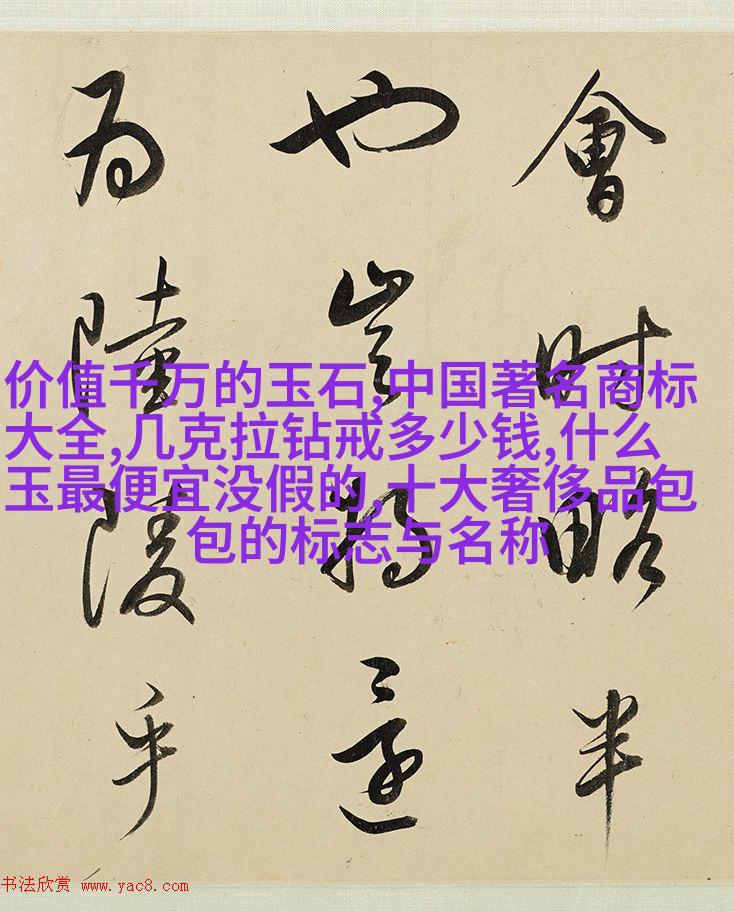 會時略半
也豈將還
為陸陵乎
价值千万的玉石,中国著名商标
大全,几克拉钻戒多少钱,什么
玉最便宜没假的,十大奢侈品包
包的标志与名称
书法欣赏 www.yac8.com